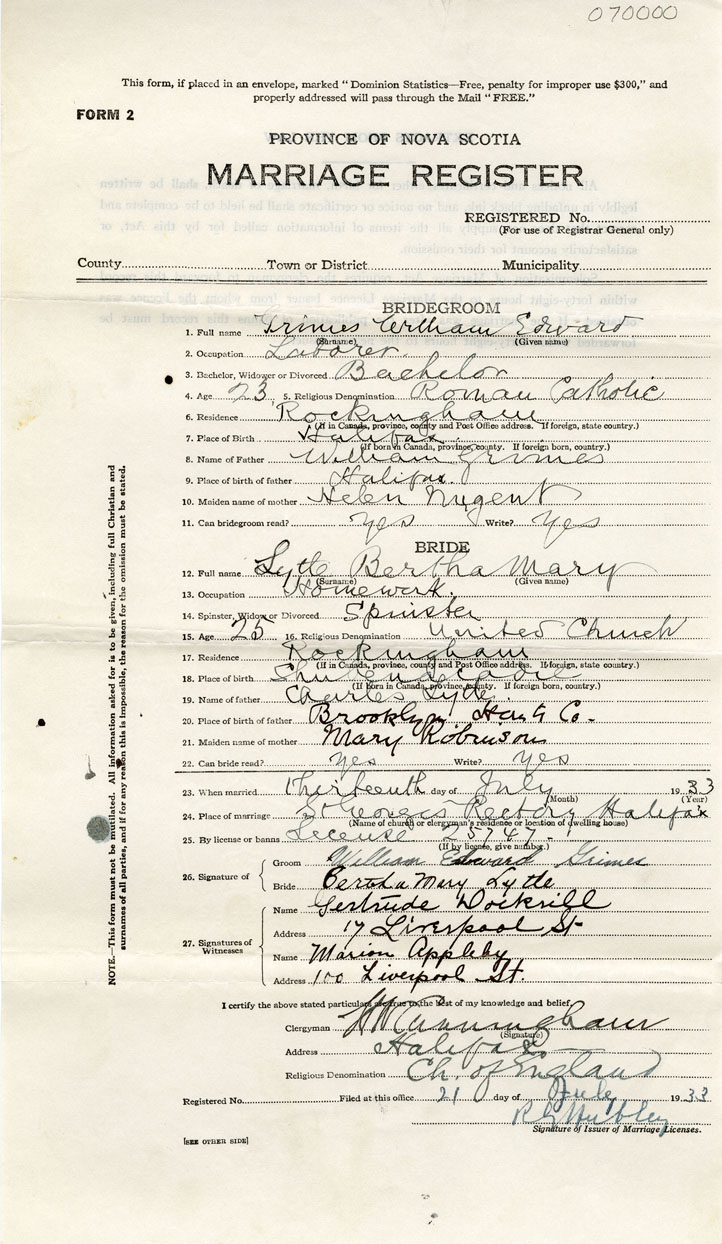 070000
This form, if placed in an envelope, marked "Dominion Statistics—Free, penalty for improper use $300," and
properly addressed will pass through the Mail "FREE."
FORM 2
PROVINCE OF NOVA SCOTIA
MARRIAGE REGISTER
REGISTERED No.
(For use of Registrar General only)
County Town or District Municipality
BRIDEGROOM
1. Full name Grimes William Edward
(Surname) (Given name)
2. Occupation Laborer
3. Bachelor, Widower or Divorced Bachelor
4. Age 23 5. Religious Denomination Roman Catholic
6. Residence Rockingham
(If in Canada, province, county and Post Office address. If foreign, state country.)
7. Place of Birth Halifax
(If born in Canada, province, county. If foreign born, country.)
8. Name of Father William Grimes
9. Place of birth of father Halifax.
10. Maiden name of mother Helen Nugent
11. Can bridegroom read? yes Write? yes
BRIDE
12. Full name Lytle Bertha Mary
(Surname) (Given name)
13. Occupation Homework.
14. Spinster, Widow or Divorced Spinster
15. Age 25 16. Religious Denomination United Church
17. Residence Rockingham
(If in Canada, province, county and Post Office address. If foreign, state country.)
18. Place of birth
(If born in Canada, province, county. If foreign born, country.)
19. Name of father Charles Lytle
20. Place of birth of father Brooklyn Hants Co.
21. Maiden name of mother Mary Robinson
22. Can bride read? yes Write? yes
23. When married Thirteenth day of July 1933
(Month) (Year)
24. Place of marriage St Georges Rectory Halifax
(Name of church or clergyman's residence or location of dwelling house)
25. By license or banns License 25747
(If by license, give number.)
26. Signature of
Groom William Edward Grimes
Bride Bertha Mary Lytle
27. Signatures of Witnesses
Name Gertrude Dockrill
Address 17 Liverpool St
Name Marion Appleby
Address 100 Liverpool St.
I certify the above stated particulars are true to the best of my knowledge and belief.
Clergyman Cunningham
(Signature)
Address Halifax
Religious Denomination Ch. of England
Registered No. Filed at this office 21 day of July 1933
Hubley
Signature of Issuer of Marriage Licenses.
[SEE OTHER SIDE]
NOTE.—This form must not be mutilated. All information asked for is to be given, including full Christian and
surnames of all parties, and if for any reason this is impossible, the reason for the omission must be stated.